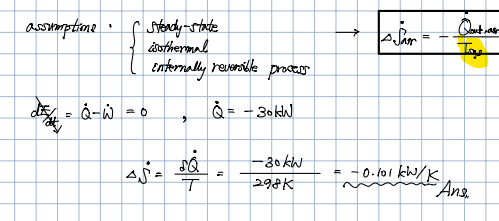 assumptions : { steady-state
isothermal
internally reversible process
→ ΔṠair = - Q̇out,air / Tsys
dE/dt = Q̇ - Ẇ = 0 , Q̇ = -30kW
ΔṠ = δQ̇ / T = -30kW / 298K = -0.101 kW/K Ans.